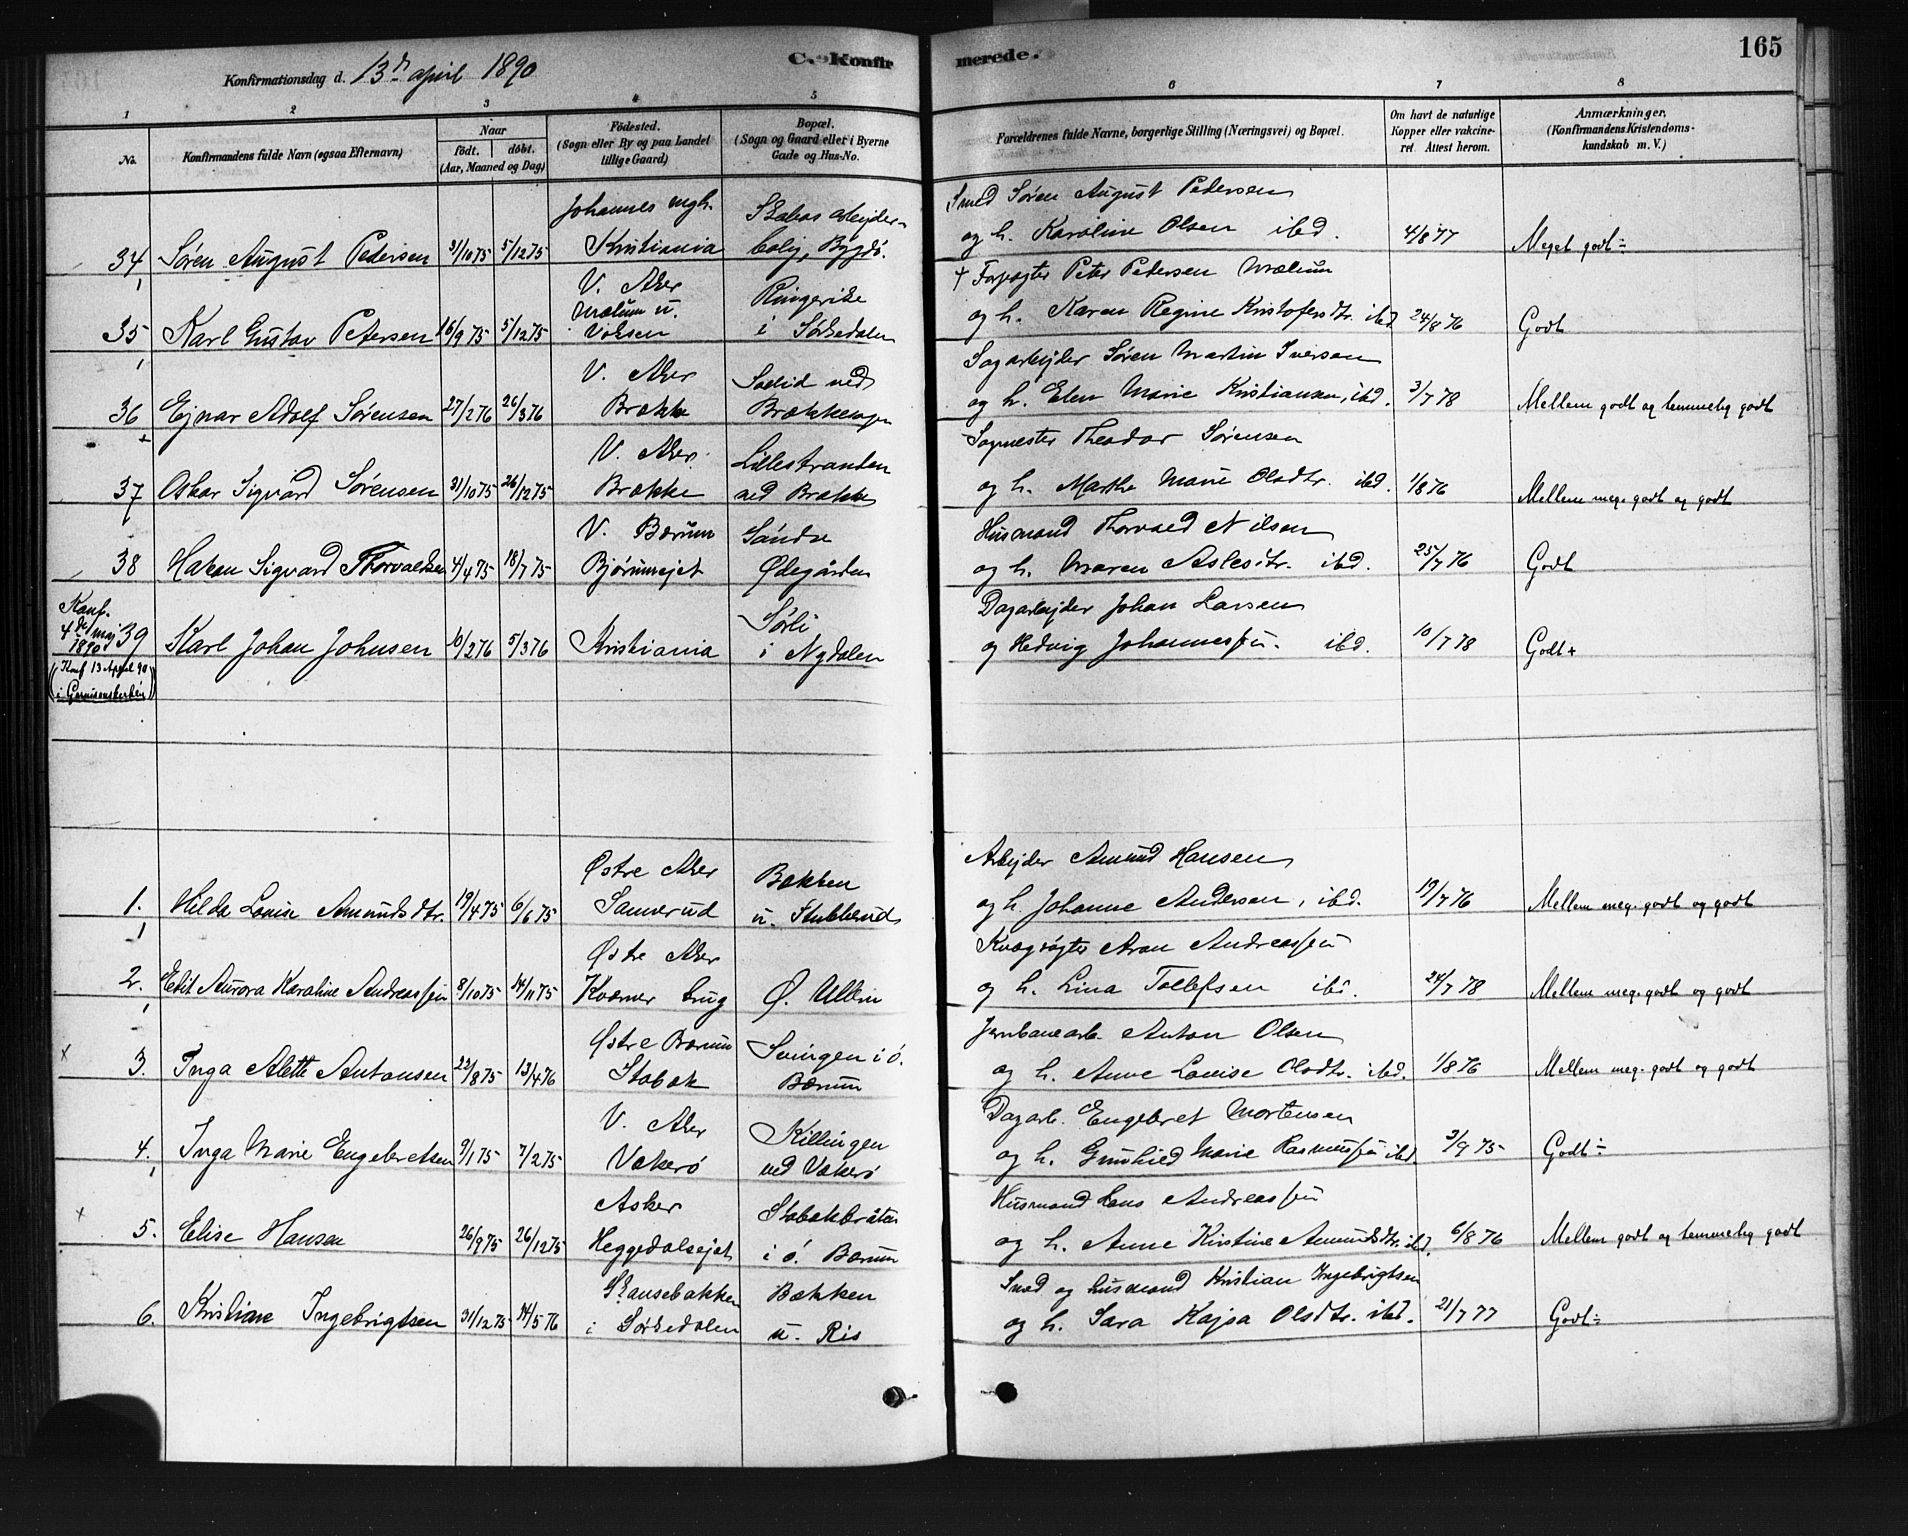 165
Konfirmationsdag d. 13d april 1890
C. Konfirmerede.
1 2 3 4 5 6 7 8
No.
Konfirmandens fulde Navn (ogsaa Efternavn)
Naar
födt. döbt.
(Aar, Maaned og Dag)
Födested.
(Sogn eller By og paa Landet
tillige Gaard)
Bopæl.
(Sogn og Gaard eller i Byerne
Gade og Hus-No.
Forældrenes fulde Navne, borgerlige Stilling (Næringsvei) og Bopæl.
Om havt de naturlige
Kopper eller vakcine-
ret. Attest herom.
Anmærkninger.
(Konfirmandens Kristendoms-
kundskab m. V.)
Johannes mgh. Skabos arbejder- Smed Søren August Pedersen
34 Søren August Pedersen 31/10 75 5/12 75 Kristiania bolig, Bygdø. og h. Karoline Olsen ibd. 4/8 77 Meget godt ÷
V. Aker Ringerike + Forpagter Peter Pedersen Mælum
Mælum u.
35 Karl Gustav Petersen 16/9 75 5/12 75 Voksen i Sørkedalen og h. Karen Regine Kristofersdtr. ibd. 24/8 76 Godt
V. Aker Solid ved Sagarbejder Søren Martin Iversen
36 Ejnar Adolf Sørensen 27/2 76 26/3 76 Brække og h. Elen Marie Kristiansen, ibd. 3/7 78 Mellem godt og temmelig godt
V. Aker Lillestranden Sagmester Theodor Sørensen
37 Oskar Sigvard Sørensen 31/10 75 26/12 75 Brække ved Brække og h. Marthe Marie Olsdtr. ibd. 1/8 76 Mellem meg. godt og godt
V. Bærum Søndre Husmand Thorvald Nilsen
38 Hakon Sigvard Thorvaldsen 4/4 75 18/7 75 Bjørumejet Ødegården og h. Maren Aslesdtr. ibd. 25/7 76 Godt
Konf. 4de maj 1890 Sørli Dagarbejder Johan Larsen
39 Karl Johan Johnsen 10/2 76 5/3 76 Kristiania i Nydalen og Hedvig Johannesen. ibd. 10/7 78 Godt +
(Konf 13 April 90
i Garnisonskirken)
Østre Aker Bakken Arbejder Amund Hansen
1. Hilda Louise Amundsdtr. 19/4 75 6/6 75 u. Stubberud og h. Johanne Andersen, ibd. 19/7 76 Mellem meg. godt og godt
Østre Aker Kvægrøgter Aron Andreassen
2. Edit Aurora Karoline Andreassen 8/10 75 14/11 75 Kværner brug Ø. Ullern og h. Lina Tollefsen ibd. 24/7 78 Mellem meg. godt og godt
Østre Bærum Svingen i ø. Jernbanearb. Anton Olsen
3. Inga Alette Antonsen 23/8 75 13/4 76 Stabæk Bærum og h. Anne Louise Olsdtr. ibd. 1/8 76 Mellem meg. godt og godt
V. Aker Killingen Dagarb. Engebret Mortensen
4. Inga Marie Engebretsen 9/1 75 7/2 75 Vækerø ved Vækerø og h. Gunhild Marie Rasmussen ibd. 3/9 75 Godt ÷
Asker Stabækbråten Husmand Hans Andreassen
5. Elise Hansen 26/9 75 26/12 75 Heggedalsejet i ø. Bærum og h. Anne Kirstine Amundsdtr. ibd. 6/8 76 Mellem godt og temmelig godt
Skansebakken Bækken Smed og husmand Kristian Ingebrigtsen
6. Kristiane Ingebrigtsen 31/12 75 14/5 76 i Sørkedalen u. Ris og h. Sara Kajsa Olsdtr. ibd. 21/7 77 Godt ÷